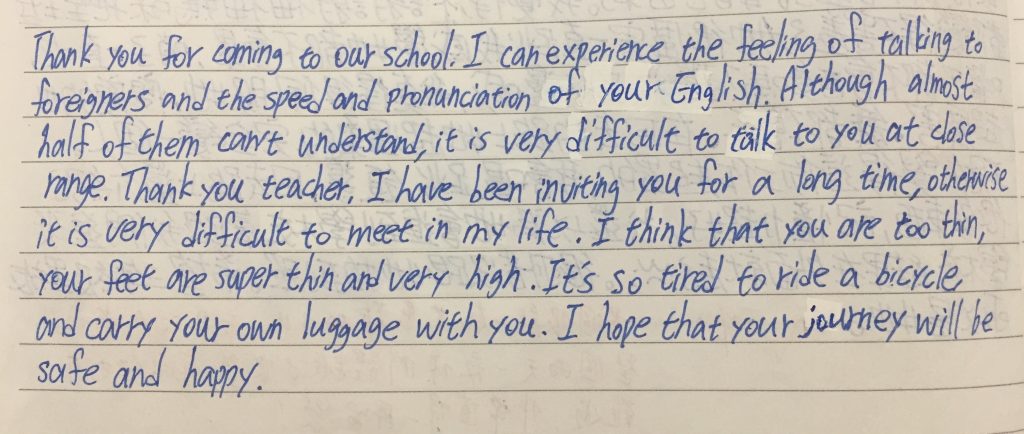 Thank you for coming to our school. I can experience the feeling of talking to
foreigners and the speed and pronunciation of your English. Although almost
half of them can't understand, it is very difficult to talk to you at close
range. Thank you teacher, I have been inviting you for a long time, otherwise
it is very difficult to meet in my life. I think that you are too thin,
your feet are super thin and very high. It's so tired to ride a bicycle
and carry your own luggage with you. I hope that your journey will be
safe and happy.